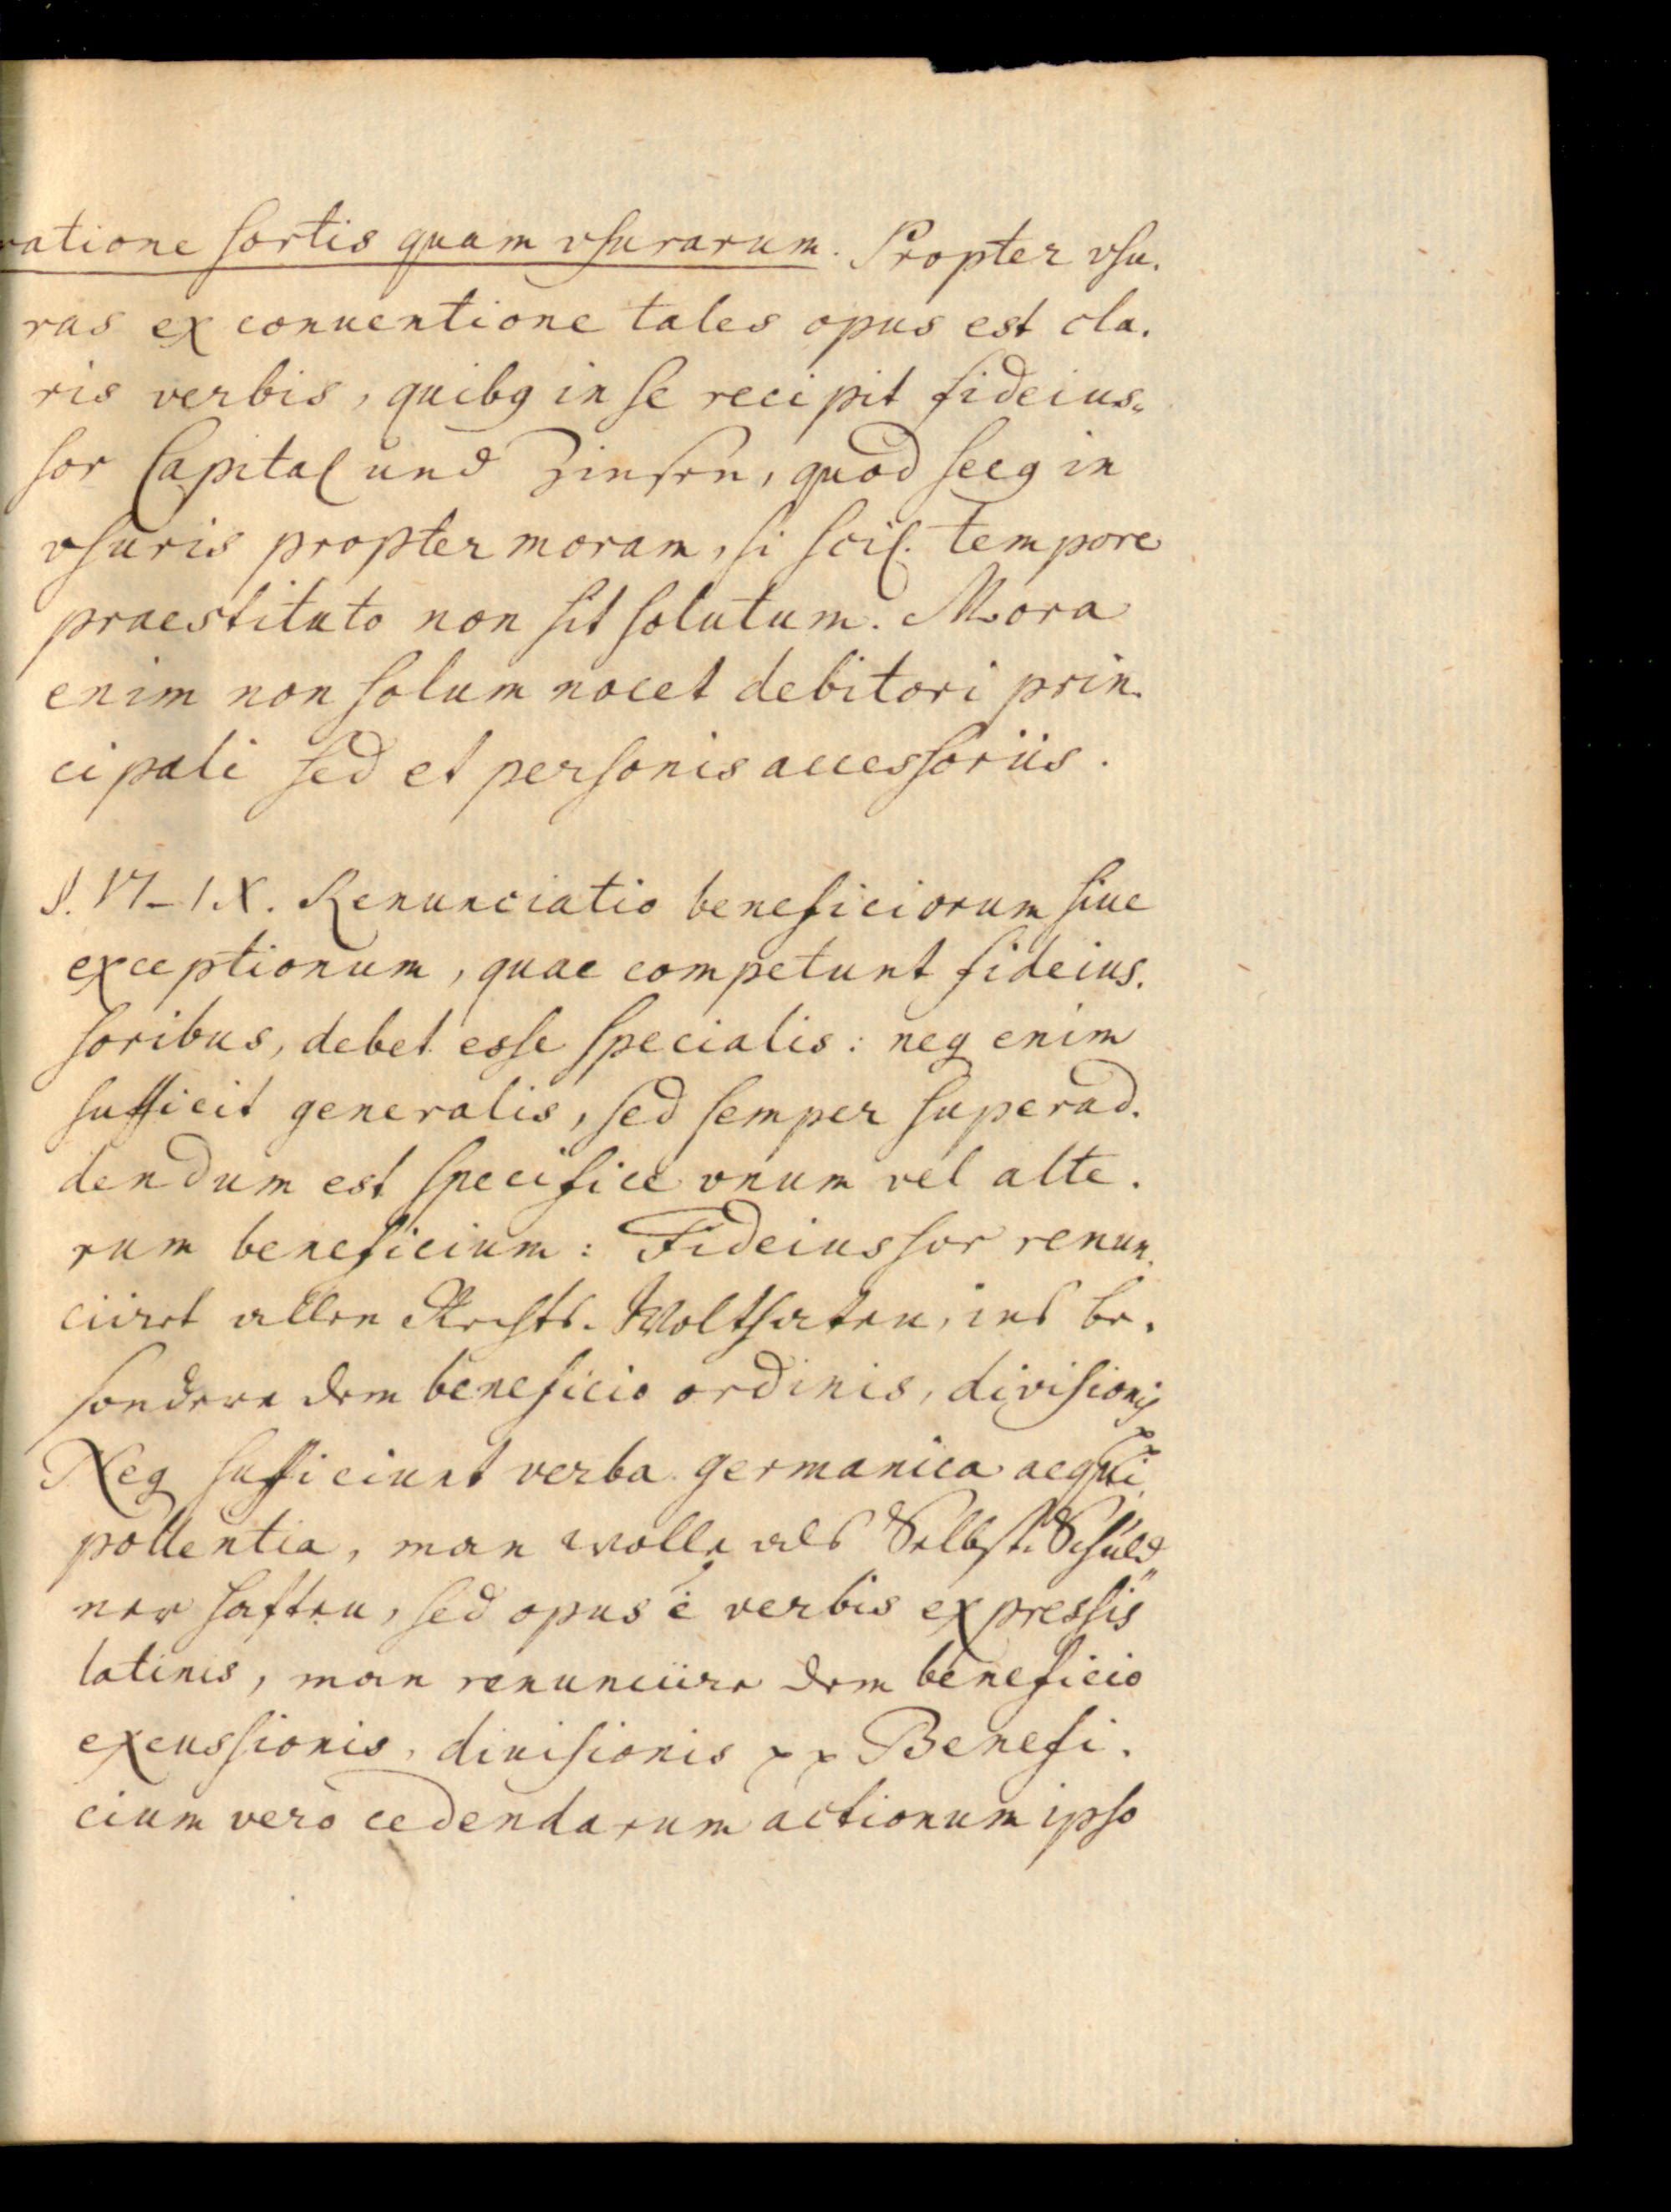 ratione sortis quam vsurarum. Propter vsu-
ras ex conuentione tales opus est cla-
ris verbis, quibq in se recipit fideius-
sor Capital und Zinsen, quod secq in
vsuris propter moram, si scil. tempore
praestituto non sit solutum. Mora
enim non solum nocet debitori prin-
cipali sed et personis accessoriis.
§. VI-IX. Renunciatio beneficiorum siue
exceptionum, quae competunt fideius-
soribus, debet esse specialis: neq enim
sufficit generalis, sed semper superad-
dendum est specifice vnum vel alte-
rum beneficium: Fideiussor renun-
ciiret allen Rechts-Wolthaten, ins be-
sondere dem beneficio ordinis, divisionis
xx
Neq sufficiunt verba germanica aequi-
pollentia, man wolle als Selbst-Schuld-
ner haften, sed opus ē verbis expressis
latinis, man renunciire dem beneficio
excussionis, diuisionis xx Benefi-
cium vero cedendarum actionum ipso